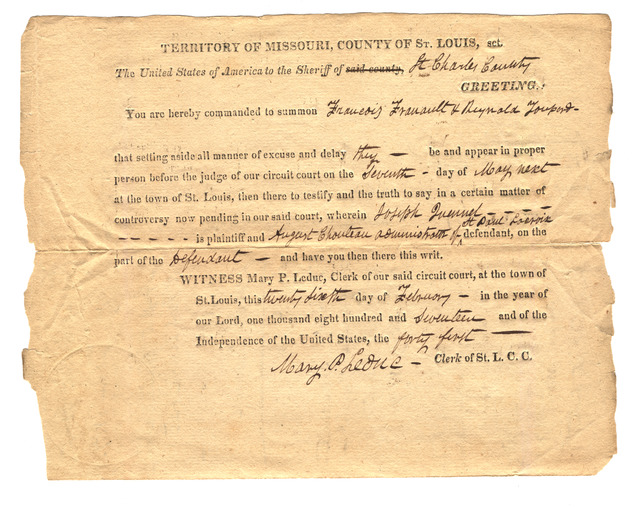 TERRITORY OF MISSOURI, COUNTY OF ST. LOUIS, sct.
The United States of America to the Sheriff of said county, St Charles County
GREETING:
You are hereby commanded to summon Francois &  Reynold
that setting aside all manner of excuse and delay they — be and appear in proper
person before the judge of our circuit court on the Seventh - day of May next
at the town of St. Louis, then there to testify and the truth to say in a certain matter of
controversy now pending in our said court, wherein Joseph - - - -
- - - - - is plaintiff and August Chouteau administrator of St Paul Lacroix defendant, on the
part of the Defendant — and have you then there this writ.
WITNESS Mary P. Leduc, Clerk of our said circuit court, at the town of
St. Louis, this twenty sixth day of February — in the year of
our Lord, one thousand eight hundred and Seventeen and of the
Independence of the United States, the forty first —
Mary. P. Leduc — Clerk of St. L. C. C.